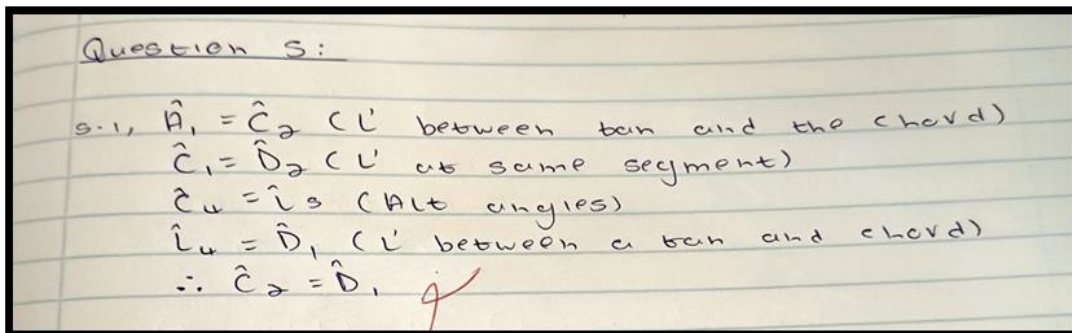 Question 5:
5.1, Â₁ = Ĉ₂ (L' between tan and the chord)
Ĉ₁ = D̂₂ (L' at same segment)
Ĉ₄ = î₃ (Alt angles)
î₄ = D̂₁ (L' between a tan and chord)
∴ Ĉ₂ = D̂₁